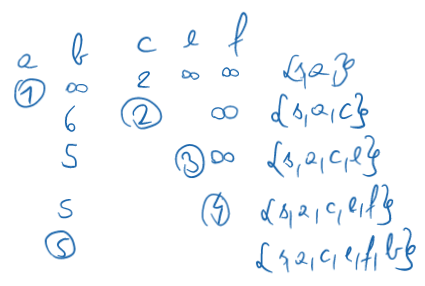 a b c e f
1 ∞ 2 ∞ ∞ {s,a}
6 2 ∞ {s,a,c}
5 3 ∞ {s,a,c,e}
5 4 {s,a,c,e,f}
5 {s,a,c,e,f,b}